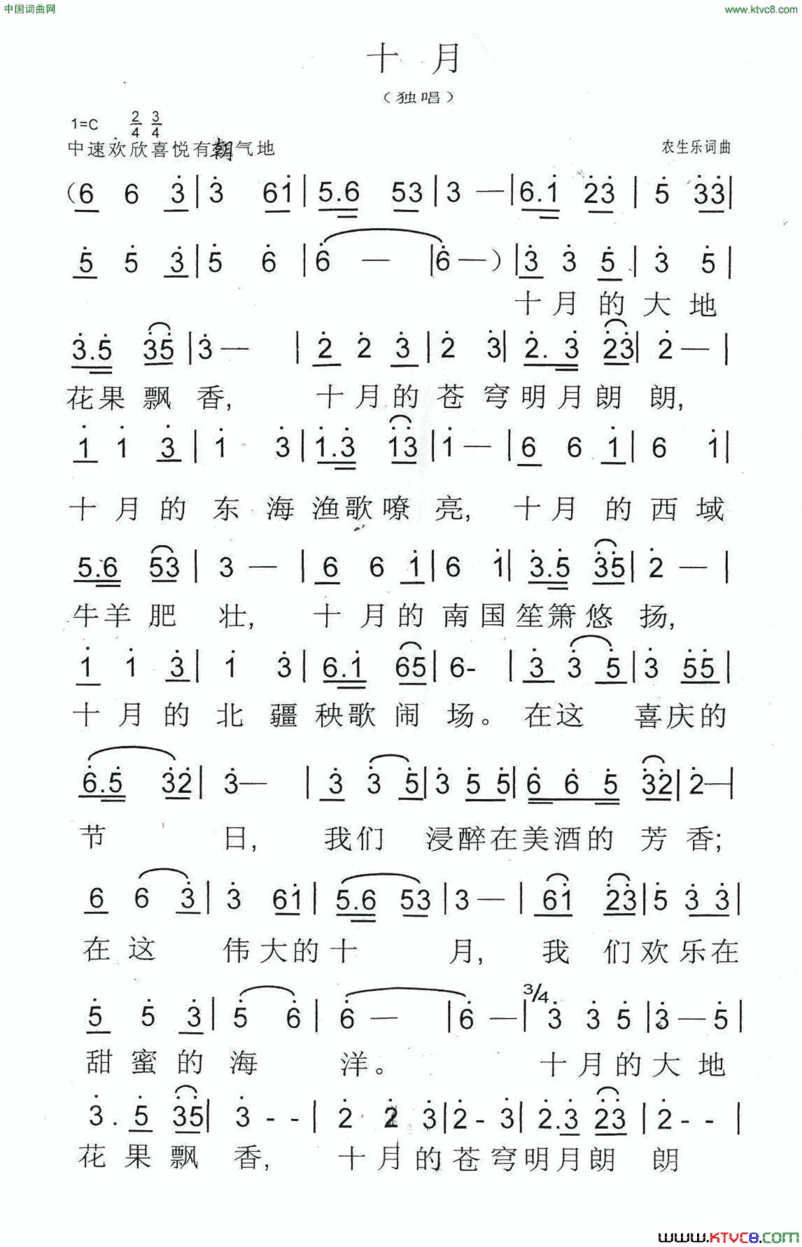 中国词曲网 www.ktvc8.com
十 月
（独唱）
1=C 2/4 3/4
中速欢欣喜悦有朝气地 农生乐词曲
(6 6 3̇|3̇ 6i̇|5.6 53|3 —|6.i̇ 2̇3̇|5̇ 3̇3̇|
5̇ 5̇ 3̇|5̇ 6̇|6̇ — |6̇ —)|3̇ 3̇ 5̇|3̇ 5̇|
十月的大地
3̇.5̇ 3̇5̇|3̇ — |2̇ 2̇ 3̇|2̇ 3̇|2̇.3̇ 2̇3̇|2̇ —|
花果飘香, 十月的苍穹明月朗朗,
i̇ i̇ 3̇|i̇ 3̇|i̇.3̇ i̇3̇|i̇ —|6 6 i̇|6 i̇|
十月的东海渔歌嘹亮, 十月的西域
5.6 53|3 — |6 6 i̇|6 i̇|3̇.5̇ 3̇5̇|2̇ —|
牛羊肥壮, 十月的南国笙箫悠扬,
i̇ i̇ 3̇|i̇ 3̇|6.i̇ 65|6-|3̇ 3̇ 5̇|3̇ 5̇5̇|
十月的北疆秧歌闹场。在这 喜庆的
6̇.5̇ 3̇2̇|3̇ — |3̇ 3̇ 5̇|3̇ 5̇ 5̇|6̇ 6̇ 5̇ 3̇2̇|2̇ —|
节 日, 我们 浸醉在美酒的芳香;
6 6 3̇|3̇ 6i̇|5.6 53|3 —|6i̇ 2̇3̇|5̇ 3̇3̇|
在这 伟大的十 月, 我们欢乐在
5̇ 5̇ 3̇|5̇ 6̇|6̇ — |6̇ —|3/4 3̇ 3̇ 5̇|3̇ — 5̇|
甜蜜的海 洋。 十月的大地
3̇. 5̇ 3̇5̇|3̇ - -|2̇ 2̇ 3̇|2̇ - 3̇|2̇.3̇ 2̇3̇|2̇ - -|
花果飘香, 十月的苍穹明月朗朗
www.KTVC8.com